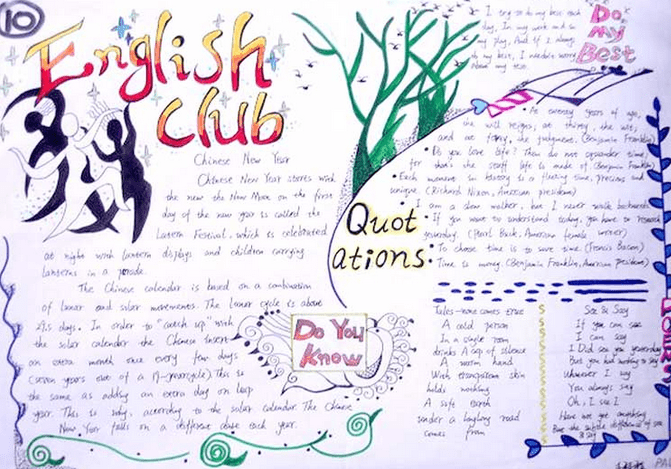 10
English
Club
Chinese New Year
Chinese New Year starts with
the new the New Moon on the first
day of the new year is called the
Lantern Festival, which is celebrated
at night with lantern displays and children carrying
lanterns in a parade.
The Chinese calendar is based on a combination
of lunar and solar movements. The lunar cycle is about
29.5 days. In order to "catch up" with
the solar calendar the Chinese insert
an extra month once every few days
years out of a This is
the same as adding an extra day on leap
year. This is why, according to the solar calendar. The Chinese
New Year falls on a different date each year.
Do You
Know
I try to do my best each
day, In my work and in
my play, And if I always
do my best, I needn't worry
about my test.
Do
My
Best
Quot
ations:
At twenty years of age,
the will reigns; at thirty, the wit;
and at forty, the judgment. (Benjamin Franklin)
Do you love life? Then do not squander time,
for that's the stuff life is made of (Benjamin Franklin)
Each moment in history is a fleeting time, precious and
unique. (Richard Nixon, American president)
I am a slow walker, but I never walk backwards
If you want to understand today, you have to research
yesterday. (Pearl Buck, American female writer)
To choose time is to save time. (Francis Bacon)
Time is money. (Benjamin Franklin, American president)
Tales-come comes true
A cold person
In a single room
drinks A cup of silence
A warm hand
With transparent skin
holds nothing
A soft earth
under a long road
comes from
See & Say
If you can see
I can say
I Did see you yesterday
But you had nothing to say
Whatever I say
You always say
Oh, I see!